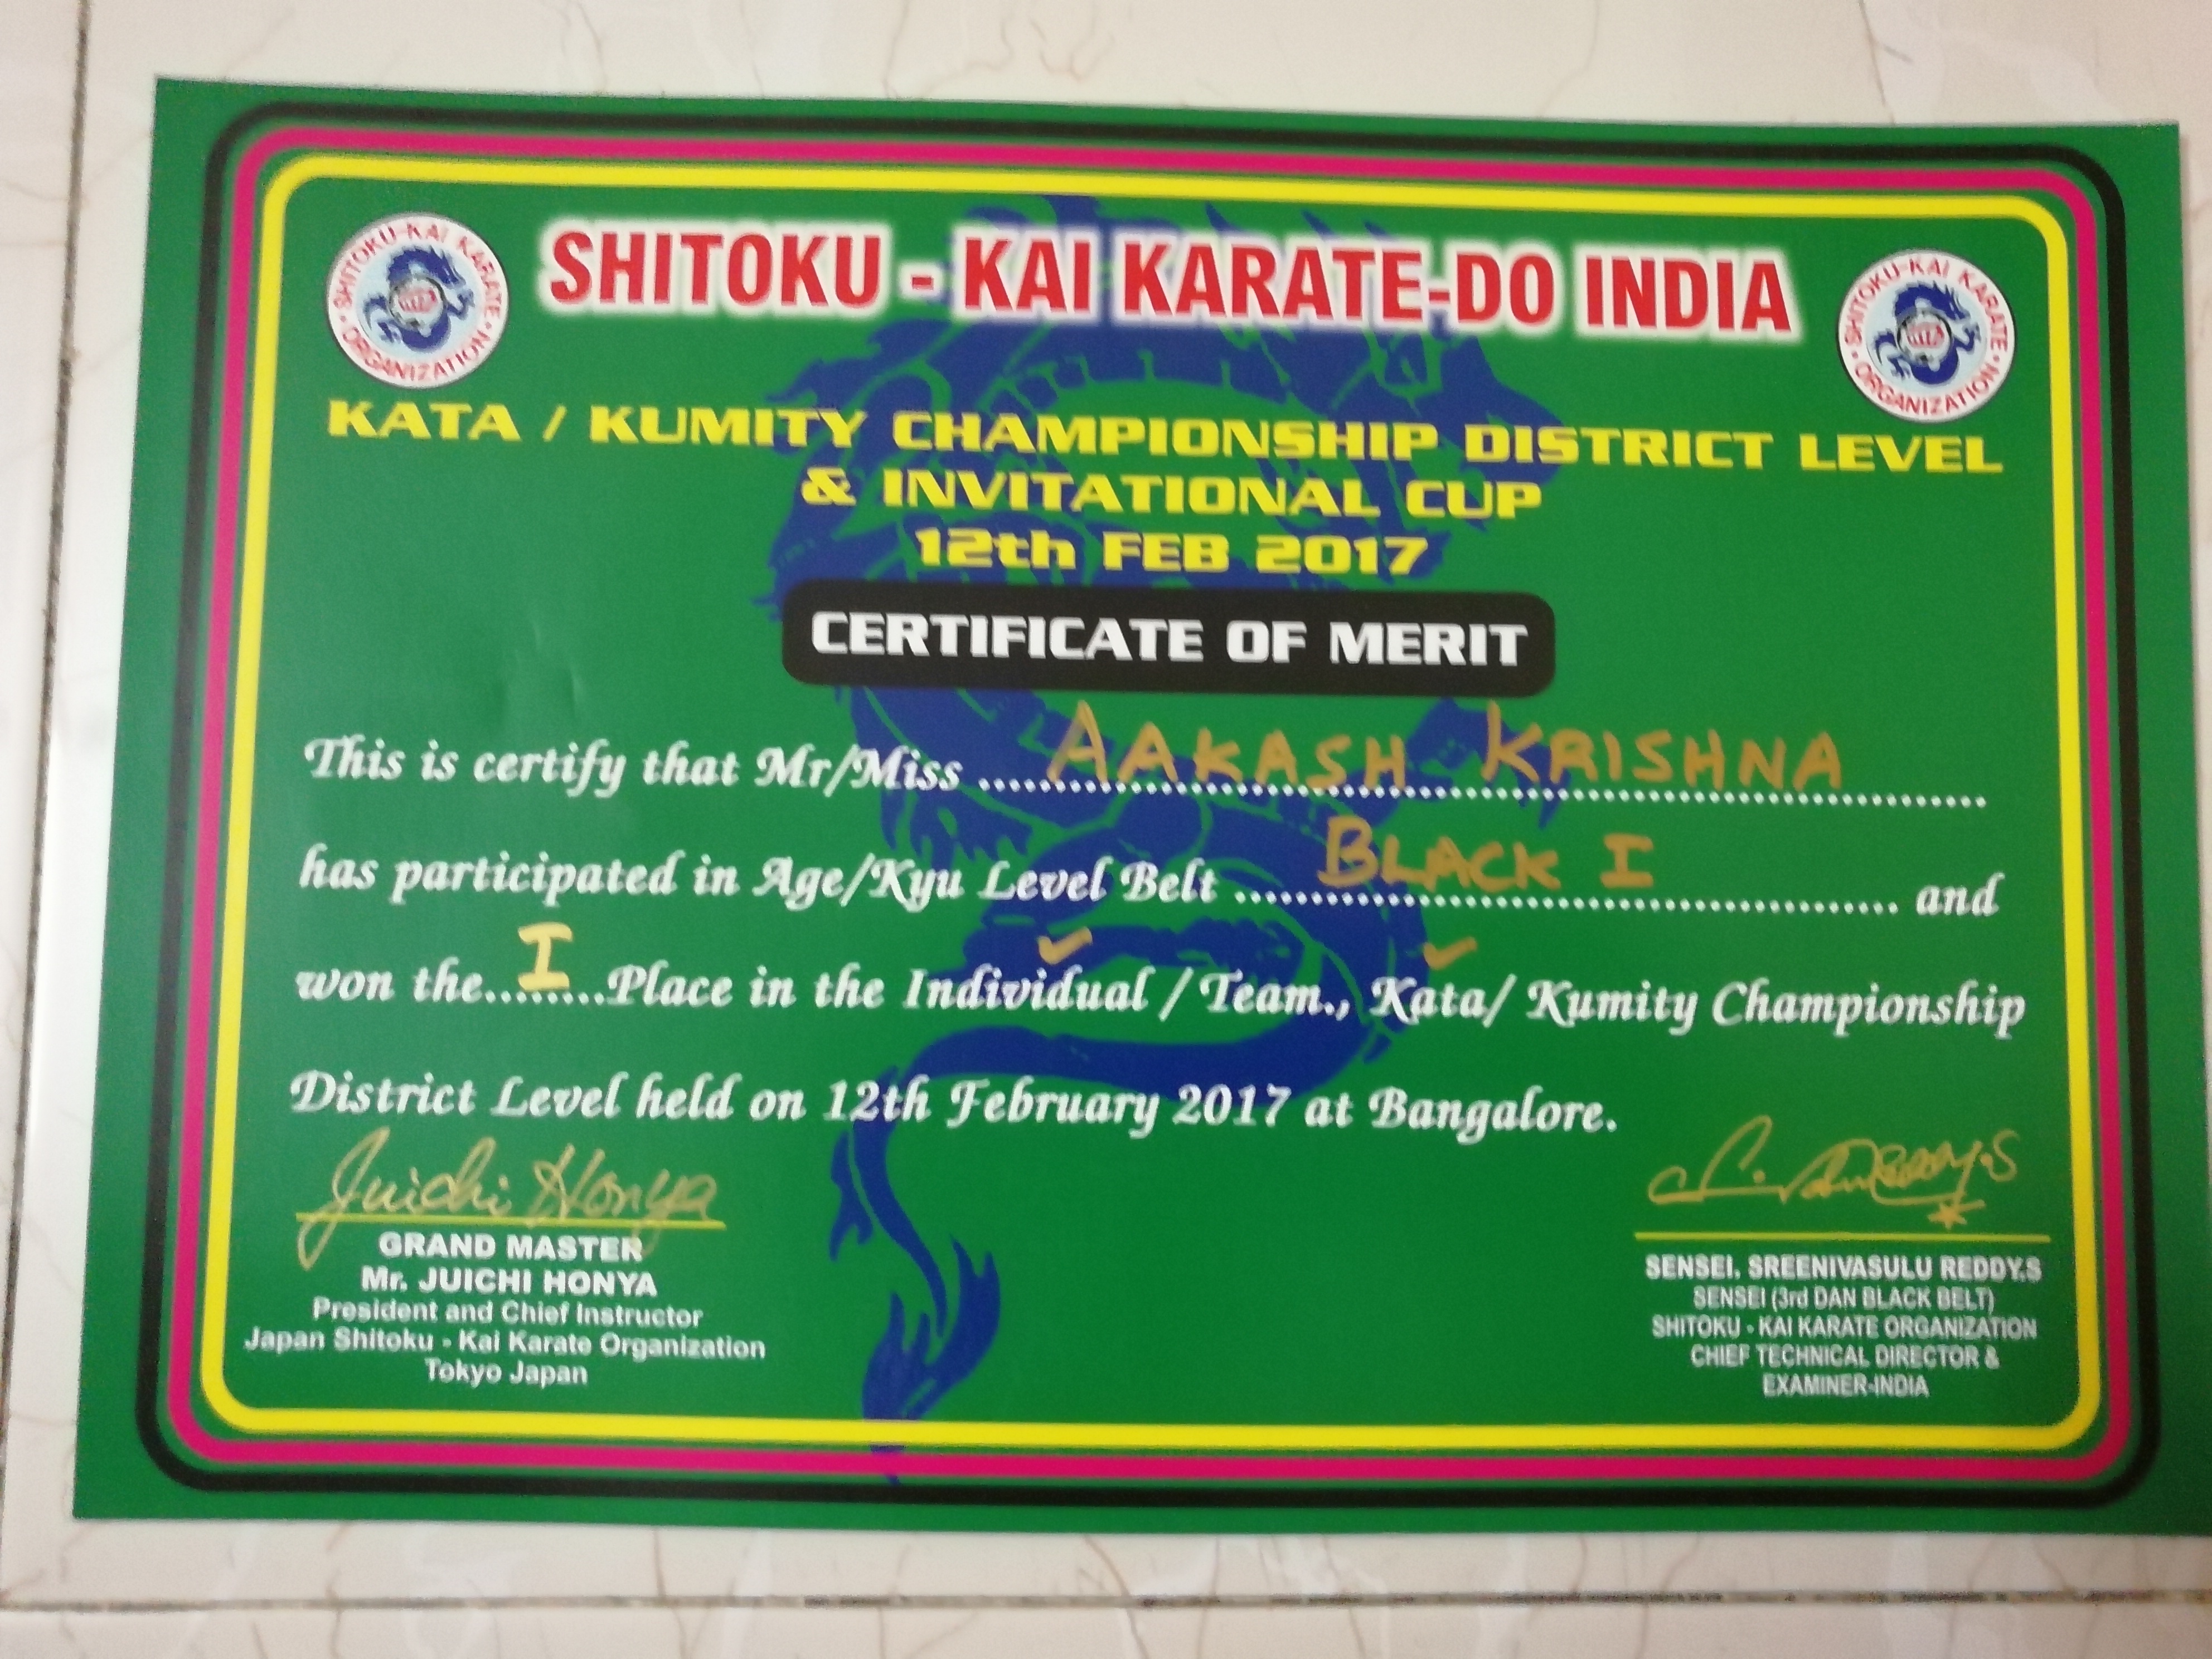 SHITOKU-KAI KARATE ORGANIZATION
SHITOKU - KAI KARATE-DO INDIA
SHITOKU-KAI KARATE ORGANIZATION
KATA / KUMITY CHAMPIONSHIP DISTRICT LEVEL
& INVITATIONAL CUP
12th FEB 2017
CERTIFICATE OF MERIT
This is certify that Mr/Miss ..... AAKASH KRISHNA .....
has participated in Age/Kyu Level Belt ..... BLACK I ..... and
won the.... I ....Place in the Individual ✓ / Team., Kata ✓/ Kumity Championship
District Level held on 12th February 2017 at Bangalore.
Juichi Honya
GRAND MASTER
Mr. JUICHI HONYA
President and Chief Instructor
Japan Shitoku - Kai Karate Organization
Tokyo Japan
SENSEI. SREENIVASULU REDDY.S
SENSEI (3rd DAN BLACK BELT)
SHITOKU - KAI KARATE ORGANIZATION
CHIEF TECHNICAL DIRECTOR &
EXAMINER-INDIA